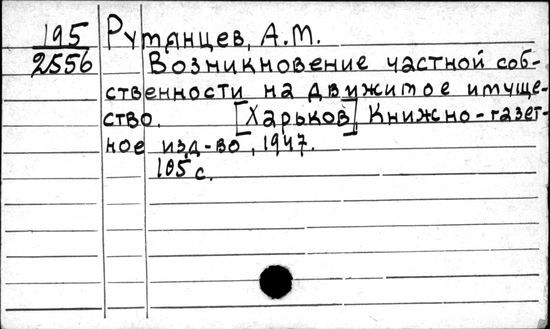 195 Румянцев, А.М.
2556 Возникновение частной соб-
ственности на движимое имуще-
ство. [Харьков] Книжно-газет-
ное изд-во, 1947.
105 с.